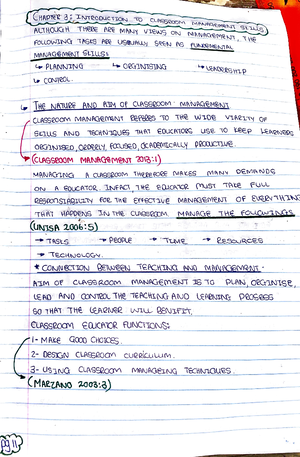 CHAPTER 3: INTRODUCTION TO CLASSROOM MANAGEMENT SKILLS
ALTHOUGH THERE ARE MANY VIEWS ON MANAGEMENT, THE
FOLLOWING TASKS ARE USUALLY SEEN AS FUNDEMENTAL
MANAGEMENT SKILLS:
↳ PLANNING ↳ ORGINISING ↳ LEADERSHIP
↳ CONTROL.
↳ THE NATURE AND AIM OF CLASSROOM MANAGEMENT
CLASSROOM MANAGEMENT REFERES TO THE WIDE VIARITY OF
SKILLS AND TECHNIQUES THAT EDUCATORS USE TO KEEP LEARNERS
ORGINISED, ORDERLY, FOCUSED, ACADEMICALLY PRODUCTIVE.
(CLASSROOM MANAGEMENT 2013:1)
MANAGING A CLASSROOM THEREFORE MAKES MANY DEMANDS
ON A EDUCATOR. INFACT, THE EDUCATOR MUST TAKE FULL
RESPONSIABILITY FOR THE EFFECTIVE MANAGEMENT OF EVERYTHING
THAT HAPPENS IN THE CLASSROOM. MANAGE THE FOLLOWINGS
(UNISA 2006:5)
→ TASKS → PEOPLE → TIME → RESOURCES
→ TECHNOLOGY.
* CONNECTION BETWEEN TEACHING AND MANAGEMENT.
AIM OF CLASSROOM MANAGEMENT IS TO PLAN, ORGINISE,
LEAD AND CONTROL THE TEACHING AND LEARNING PROSESS
SO THAT THE LEARNER WILL BENIFIT.
CLASSROOM EDUCATOR FUNCTIONS:
1- MAKE GOOD CHOICES.
2- DESIGN CLASSROOM CURRICULUM.
3- USING CLASSROOM MANAGEING TECHNIQUES.
(MARZANO 2003:3)
pg 11